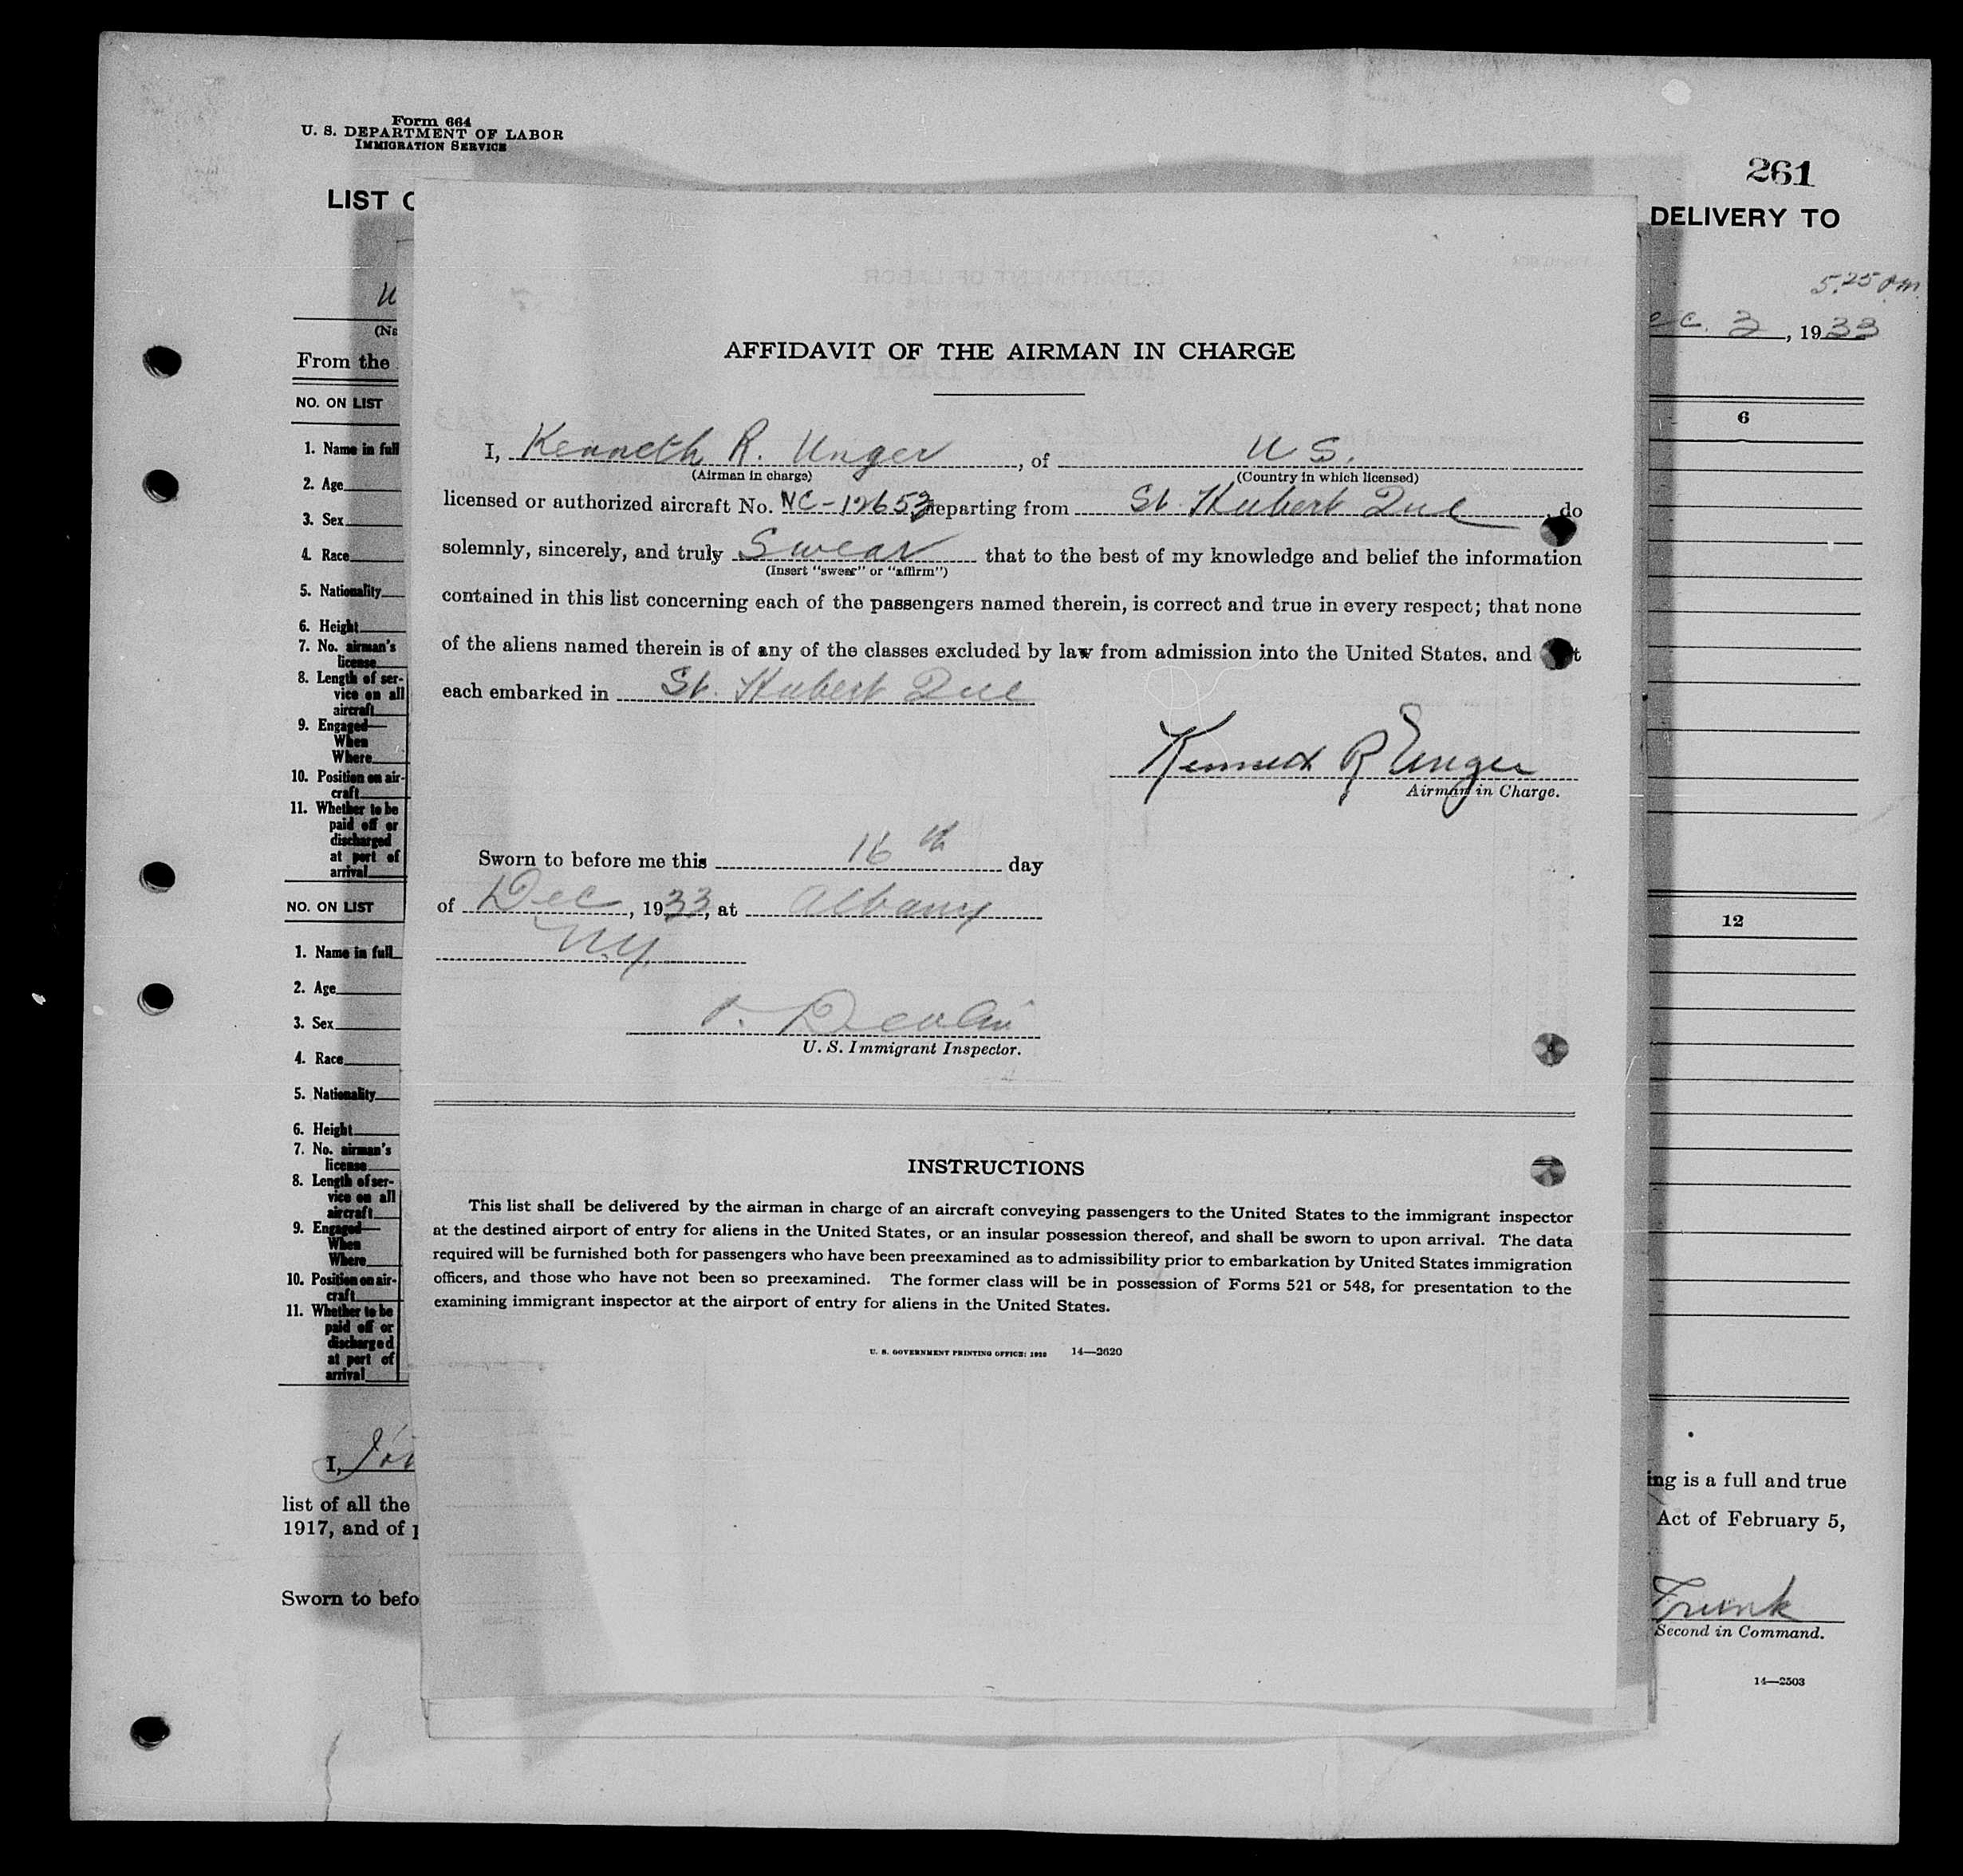 Form 664
U. S. DEPARTMENT OF LABOR
IMMIGRATION SERVICE
261
LIST
DELIVERY TO
5.25 pm.
ec. 3, 1933
(Na
From the
NO. ON LIST
6
1. Name in full
2. Age
3. Sex
4. Race
5. Nationality
6. Height
7. No. airman's
license
8. Length of ser-
vice on all
aircraft
9. Engaged—
When
Where
10. Position on air-
craft
11. Whether to be
paid off or
discharged
at port of
arrival
NO. ON LIST
12
1. Name in full
2. Age
3. Sex
4. Race
5. Nationality
6. Height
7. No. airman's
license
8. Length of ser-
vice on all
aircraft
9. Engaged—
When
Where
10. Position on air-
craft
11. Whether to be
paid off or
discharged
at port of
arrival
I,
list of all the
1917, and of
Sworn to befo
ing is a full and true
Act of February 5,
Frunk
Second in Command.
14—2503
AFFIDAVIT OF THE AIRMAN IN CHARGE
I, Kenneth R. Unger, of U S.
(Airman in charge) (Country in which licensed)
licensed or authorized aircraft No. NC-12653 departing from St. Hubert Que, do
solemnly, sincerely, and truly Swear that to the best of my knowledge and belief the information
(Insert "swear" or "affirm")
contained in this list concerning each of the passengers named therein, is correct and true in every respect; that none
of the aliens named therein is of any of the classes excluded by law from admission into the United States, and t
each embarked in St. Hubert Que
Kenneth R Unger
Airman in Charge.
Sworn to before me this 16th day
of Dec, 1933, at Albany
N.Y.
Devlin
U. S. Immigrant Inspector.
INSTRUCTIONS
This list shall be delivered by the airman in charge of an aircraft conveying passengers to the United States to the immigrant inspector
at the destined airport of entry for aliens in the United States, or an insular possession thereof, and shall be sworn to upon arrival. The data
required will be furnished both for passengers who have been preexamined as to admissibility prior to embarkation by United States immigration
officers, and those who have not been so preexamined. The former class will be in possession of Forms 521 or 548, for presentation to the
examining immigrant inspector at the airport of entry for aliens in the United States.
U. S. GOVERNMENT PRINTING OFFICE: 14—2620